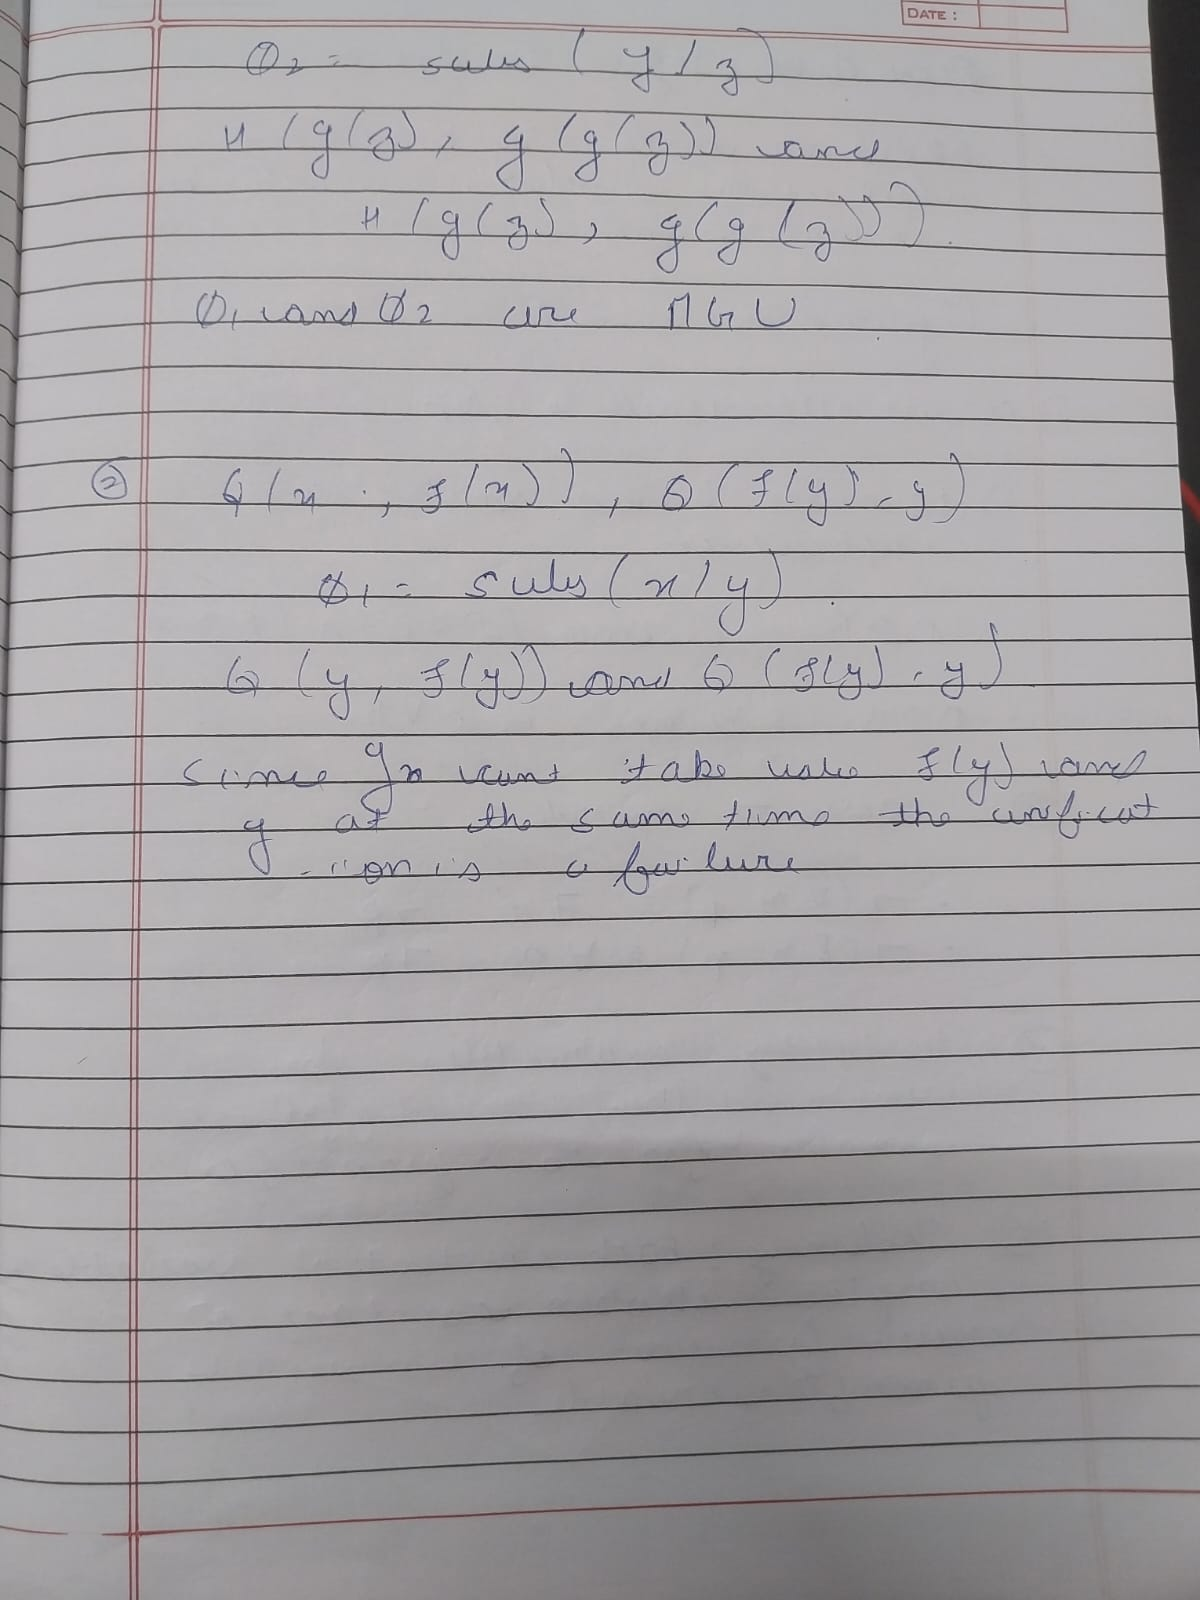 DATE :
θ2 = subs ( y / z )
H ( g(z), g (g(z)) and
H ( g(z), g(g (z)) ) .
θ1 and θ2 are MGU
② Q ( x , f(x) ) , Q ( f(y) , y )
θ1 = subs ( x / y )
Q ( y, f(y)) and Q ( f(y) , y )
since x cant take f(y) and
y at the same time the unificat
-ion is a failure